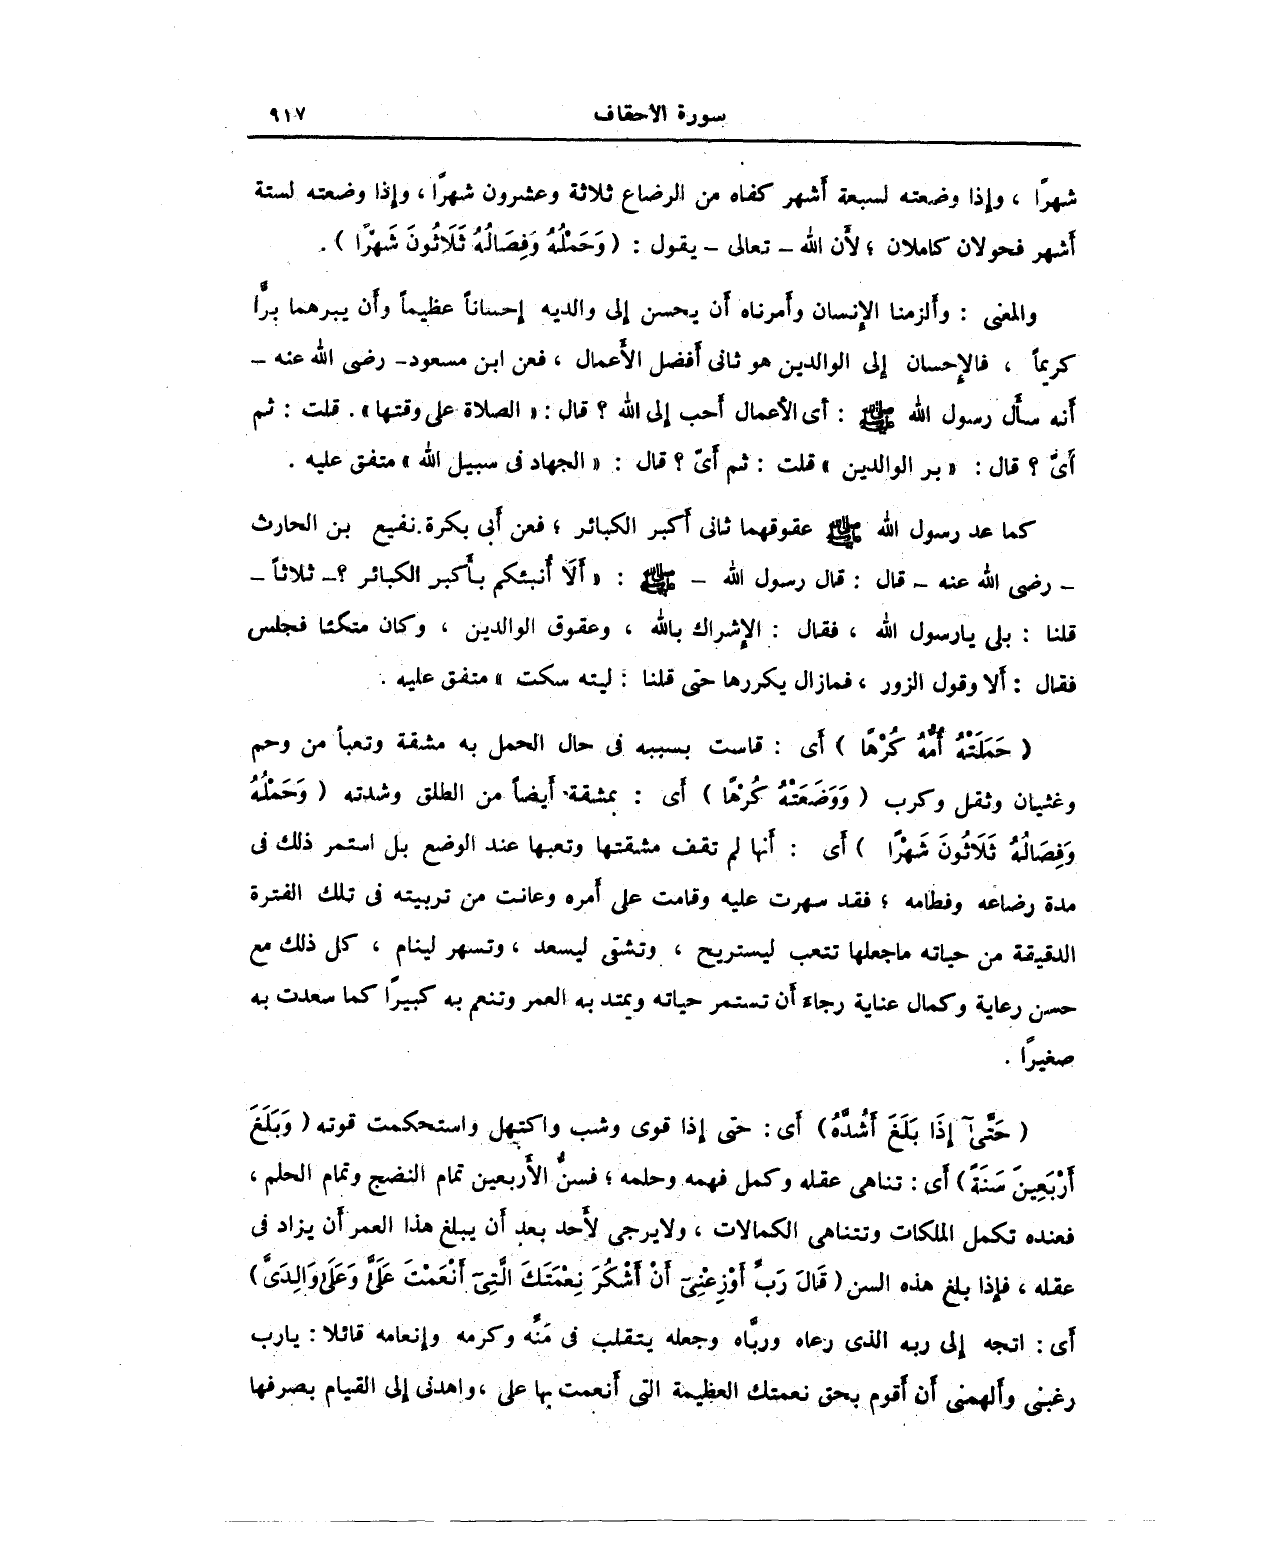 سورة الأحقاف ٩١٧
شهرًا ، وإذا وضعته لسبعة أشهر كفاه من الرضاع ثلاثة وعشرون شهرًا ، وإذا وضعته لستة
أشهر فحولان كاملان ؛ لأن الله - تعالى - يقول : ( وَحَمْلُهُ وَفِصَالُهُ ثَلَاثُونَ شَهْرًا ) .
والمعنى : وألزمنا الإنسان وأمرناه أن يحسن إلى والديه إحساناً عظيماً وأن يبرهما برًّا
كريماً ، فالإحسان إلى الوالدين هو ثانى أفضل الأعمال ، فعن ابن مسعود- رضى الله عنه -
أنه سأل رسول الله ﷺ : أى الأعمال أحب إلى الله ؟ قال : « الصلاة على وقتها » . قلت : ثم
أىّ ؟ قال : « بر الوالدين » قلت : ثم أىّ ؟ قال : « الجهاد فى سبيل الله » متفق عليه .
كما عد رسول الله ﷺ عقوقهما ثانى أكبر الكبائر ؛ فعن أبى بكرة نفيع بن الحارث
- رضى الله عنه - قال : قال رسول الله - ﷺ : « أَلَا أُنبئكم بأكبر الكبائر ؟- ثلاثاً -
قلنا : بلى يارسول الله ، فقال : الإشراك بالله ، وعقوق الوالدين ، وكان متكئا فجلس
فقال : ألا وقول الزور ، فمازال يكررها حتى قلنا : ليته سكت » متفق عليه .
( حَمَلَتْهُ أُمُّهُ كُرْهًا ) أى : قاست بسببه فى حال الحمل به مشقة وتعبأ من وحم
وغثيان وثقل وكرب ( وَوَضَعَتْهُ كُرْهًا ) أى : بمشقة أيضاً من الطلق وشدته ( وَحَمْلُهُ
وَفِصَالُهُ ثَلَاثُونَ شَهْرًا ) أى : أنها لم تقف مشقتها وتعبها عند الوضع بل استمر ذلك فى
مدة رضاعه وفطامه ؛ فقد سهرت عليه وقامت على أمره وعانت من تربيته فى تلك الفترة
الدقيقة من حياته ماجعلها تتعب ليستريح ، وتشقى ليسعد ، وتسهر لينام ، كل ذلك مع
حسن رعاية وكمال عناية رجاء أن تستمر حياته ويمتد به العمر وتنعم به كبيرًا كما سعدت به
صغيرًا .
( حَتَّىٰٓ إِذَا بَلَغَ أَشُدَّهُ ) أى : حتى إذا قوى وشب واكتهل واستحكمت قوته ( وَبَلَغَ
أَرْبَعِينَ سَنَةً ) أى : تناهى عقله وكمل فهمه وحلمه ؛ فسنُّ الأربعين تمام النضج وتمام الحلم ،
فعنده تكمل الملكات وتتناهى الكمالات ، ولايرجى لأحد بعد أن يبلغ هذا العمر أن يزاد فى
عقله ، فإذا بلغ هذه السن ( قَالَ رَبِّ أَوْزِعْنِىٓ أَنْ أَشْكُرَ نِعْمَتَكَ الَّتِىٓ أَنْعَمْتَ عَلَىَّ وَعَلَىٰ وَالِدَىَّ )
أى : اتجه إلى ربه الذى رعاه وربَّاه وجعله يتقلب فى مَنِّه وكرمه وإنعامه قائلا : يارب
رغبنى وألهمنى أن أقوم بحق نعمتك العظيمة التى أنعمت بها على ، واهدنى إلى القيام بصرفها